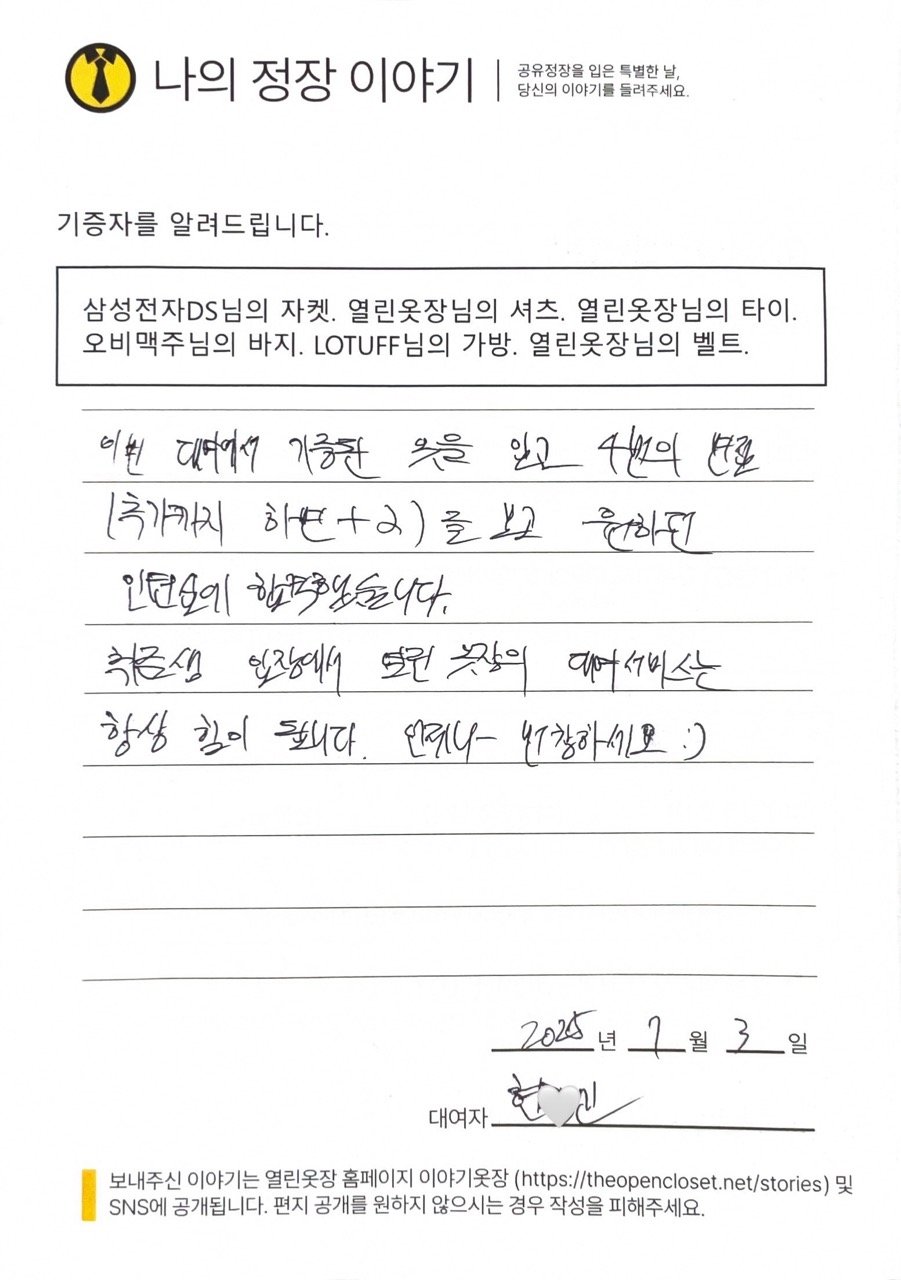 나의 정장 이야기
공유정장을 입은 특별한 날,
당신의 이야기를 들려주세요.
기증자를 알려드립니다.
삼성전자DS님의 자켓. 열린옷장님의 셔츠. 열린옷장님의 타이.
오비맥주님의 바지. LOTUFF님의 가방. 열린옷장님의 벨트.
이번 대여에서 기증된 옷을 입고 4번의 면접
(추가까지 하면 +2)를 보고 원하던
인턴십에 합격했습니다.
취준생 입장에서 열린 옷장의 대여서비스는
항상 힘이 됩니다. 언제나 번창하세요 :)
2025년 7월 3일
대여자
보내주신 이야기는 열린옷장 홈페이지 이야기옷장 (https://theopencloset.net/stories) 및
SNS에 공개됩니다. 편지 공개를 원하지 않으시는 경우 작성을 피해주세요.